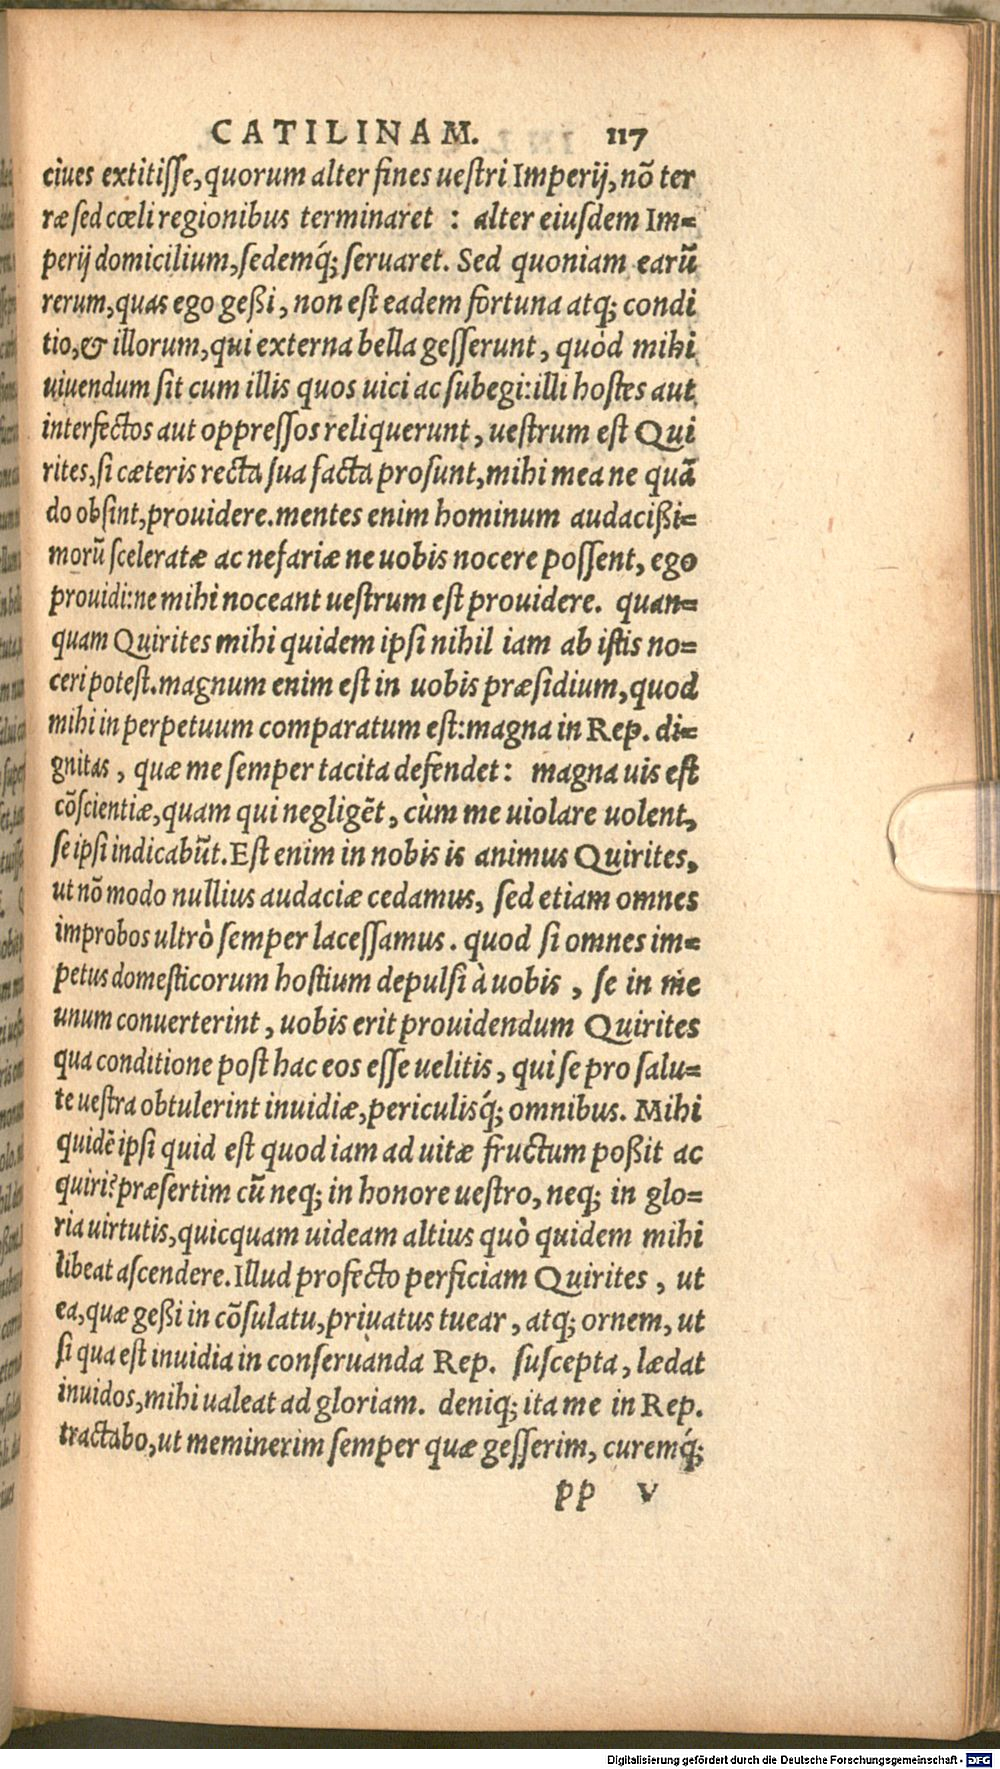 CATILINAM. 117
ciues extitisse, quorum alter fines uestri Imperij, nõ ter
ræ sed cœli regionibus terminaret : alter eiusdem Im=
perij domicilium, sedemq́; seruaret. Sed quoniam earũ
rerum, quas ego geßi, non est eadem fortuna atq; condi
tio, & illorum, qui externa bella gesserunt, quòd mihi
uiuendum sit cum illis quos uici ac subegi: illi hostes aut
interfectos aut oppressos reliquerunt, uestrum est Qui
rites, si cæteris recta sua facta prosunt, mihi mea ne quã
do obsint, prouidere. mentes enim hominum audacißi=
morũ sceleratæ ac nefariæ ne uobis nocere possent, ego
prouidi: ne mihi noceant uestrum est prouidere. quan=
quam Quirites mihi quidem ipsi nihil iam ab istis no=
ceri potest. magnum enim est in uobis præsidium, quod
mihi in perpetuum comparatum est: magna in Rep. di=
gnitas, quæ me semper tacita defendet: magna uis est
cõscientiæ, quam qui negligẽt, cùm me uiolare uolent,
se ipsi indicabũt. Est enim in nobis is animus Quirites,
ut nõ modo nullius audaciæ cedamus, sed etiam omnes
improbos ultrò semper lacessamus. quod si omnes im=
petus domesticorum hostium depulsi à uobis, se in me
unum conuerterint, uobis erit prouidendum Quirites
qua conditione post hac eos esse uelitis, qui se pro salu=
te uestra obtulerint inuidiæ, periculisq́; omnibus. Mihi
quidẽ ipsi quid est quod iam ad uitæ fructum poßit ac
quiri? præsertim cũ neq; in honore uestro, neq; in glo=
ria uirtutis, quicquam uideam altius quò quidem mihi
libeat ascendere. Illud profecto perficiam Quirites, ut
ea, quæ geßi in cõsulatu, priuatus tuear, atq; ornem, ut
si qua est inuidia in conseruanda Rep. suscepta, lædat
inuidos, mihi ualeat ad gloriam. deniq; ita me in Rep.
tractabo, ut meminerim semper quæ gesserim, curemq́;
pp v
Digitalisierung gefördert durch die Deutsche Forschungsgemeinschaft - DFG